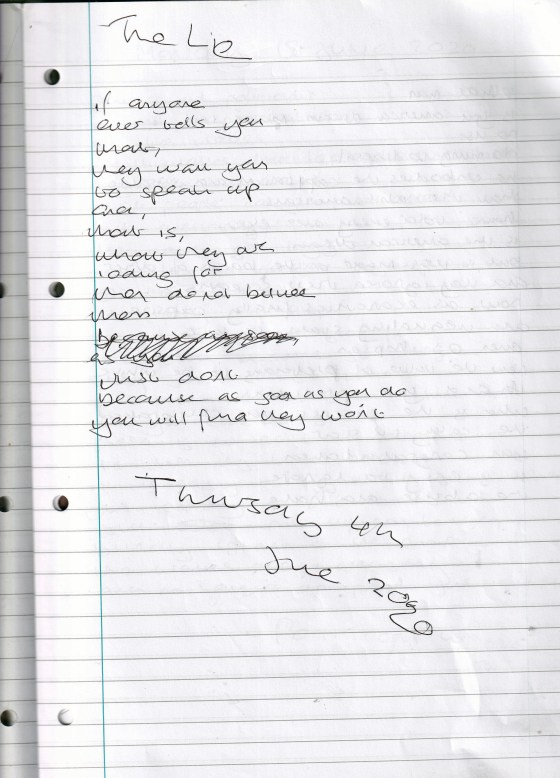 The Lie
if anyone
ever tells you
that,
they want you
to speak up
and,
that is,
what they are
looking for
then don't believe
them
just don't
because as soon as you do
you will find they won't
Thursday 4th
June 2020